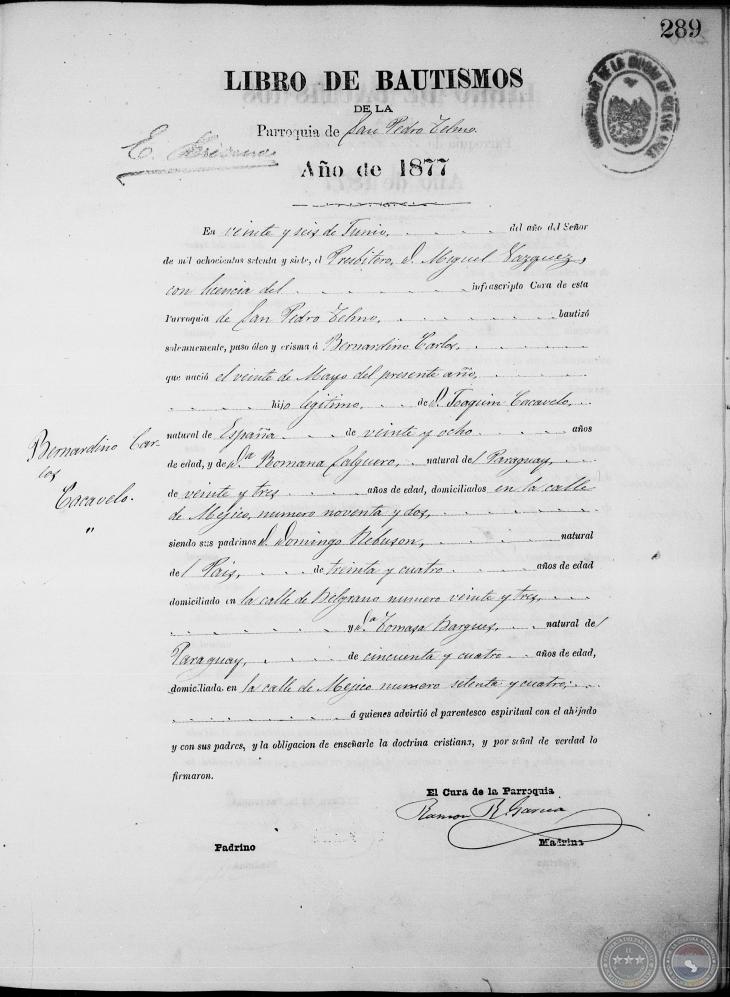 289
LIBRO DE BAUTISMOS
DE LA
Parroquia de San Pedro Telmo.
E.
Año de 1877
En veinte y seis de Junio, del año del Señor
de mil ochocientos setenta y siete, el Presbítero, D. Miguel Vazquez,
con licencia del infrascripto Cura de esta
Parroquia de San Pedro Telmo, bautizó
solemnemente, puso óleo y crisma á Bernardino Carlos,
que nació el veinte de Mayo del presente año,
hijo legítimo, de D. Joaquin Cacavelo,
natural de España de veinte y ocho años
de edad, y de Da Romana Salguero, natural del Paraguay,
de veinte y tres años de edad, domiciliados en la calle
de Méjico, numero noventa y dos,
siendo sus padrinos D. Domingo Rebuson, natural
del Pais, de treinta y cuatro años de edad
domiciliado en la calle de Belgrano numero veinte y tres,
y Da Tomasa Bargues, natural del
Paraguay, de cincuenta y cuatro años de edad,
domiciliada en la calle de Mejico numero setenta y cuatro;
á quienes advirtió el parentesco espiritual con el ahijado
y con sus padres, y la obligacion de enseñarle la doctrina cristiana, y por señal de verdad lo
firmaron.
Bernardino Car-
los
Cacavelo.
"
El Cura de la Parroquia
Ramon R. Garcia
Padrino
Madrina